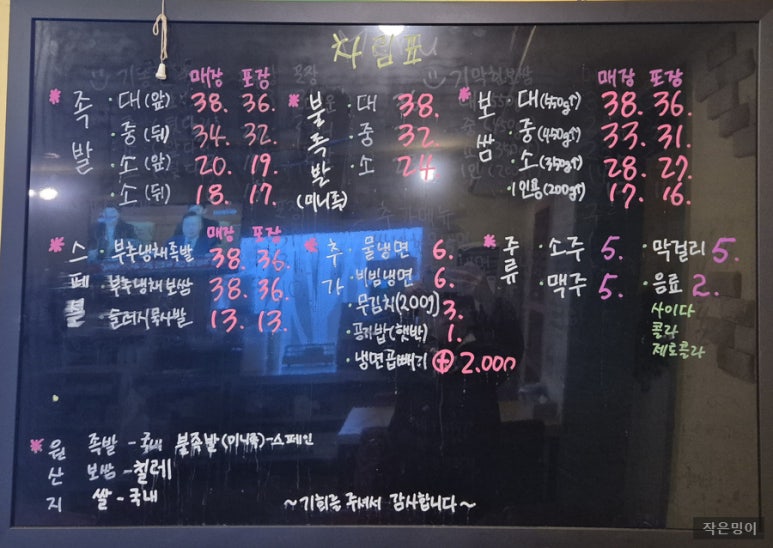 차림표
매장 포장
* 족발 · 대(앞) 38. 36.
· 중(뒤) 34. 32.
· 소(앞) 20. 19.
· 소(뒤) 18. 17.
* 불족발 (미니족) · 대 38.
· 중 32.
· 소 24
매장 포장
* 보쌈 · 대(550g↑) 38. 36.
· 중(450g↑) 33. 31.
· 소(350g↑) 28. 27.
· 1인용(200g↑) 17. 16.
매장 포장
* 스페셜 · 부추냉채족발 38. 36.
· 부추냉채보쌈 38. 36.
· 술러시묵사발 13. 13.
* 추가 · 물냉면 6.
· 비빔냉면 6.
· 무김치(200g) 3.
· 공기밥(햇반) 1.
· 냉면곱빼기 + 2.000
* 주류 · 소주 5. · 막걸리 5.
· 맥주 5. · 음료 2.
사이다
콜라
제로콜라
* 원산지 족발 - 국내 불족발(미니족)-스페인
보쌈 - 칠레
쌀 - 국내
~기회를 주셔서 감사합니다~
작은밍이